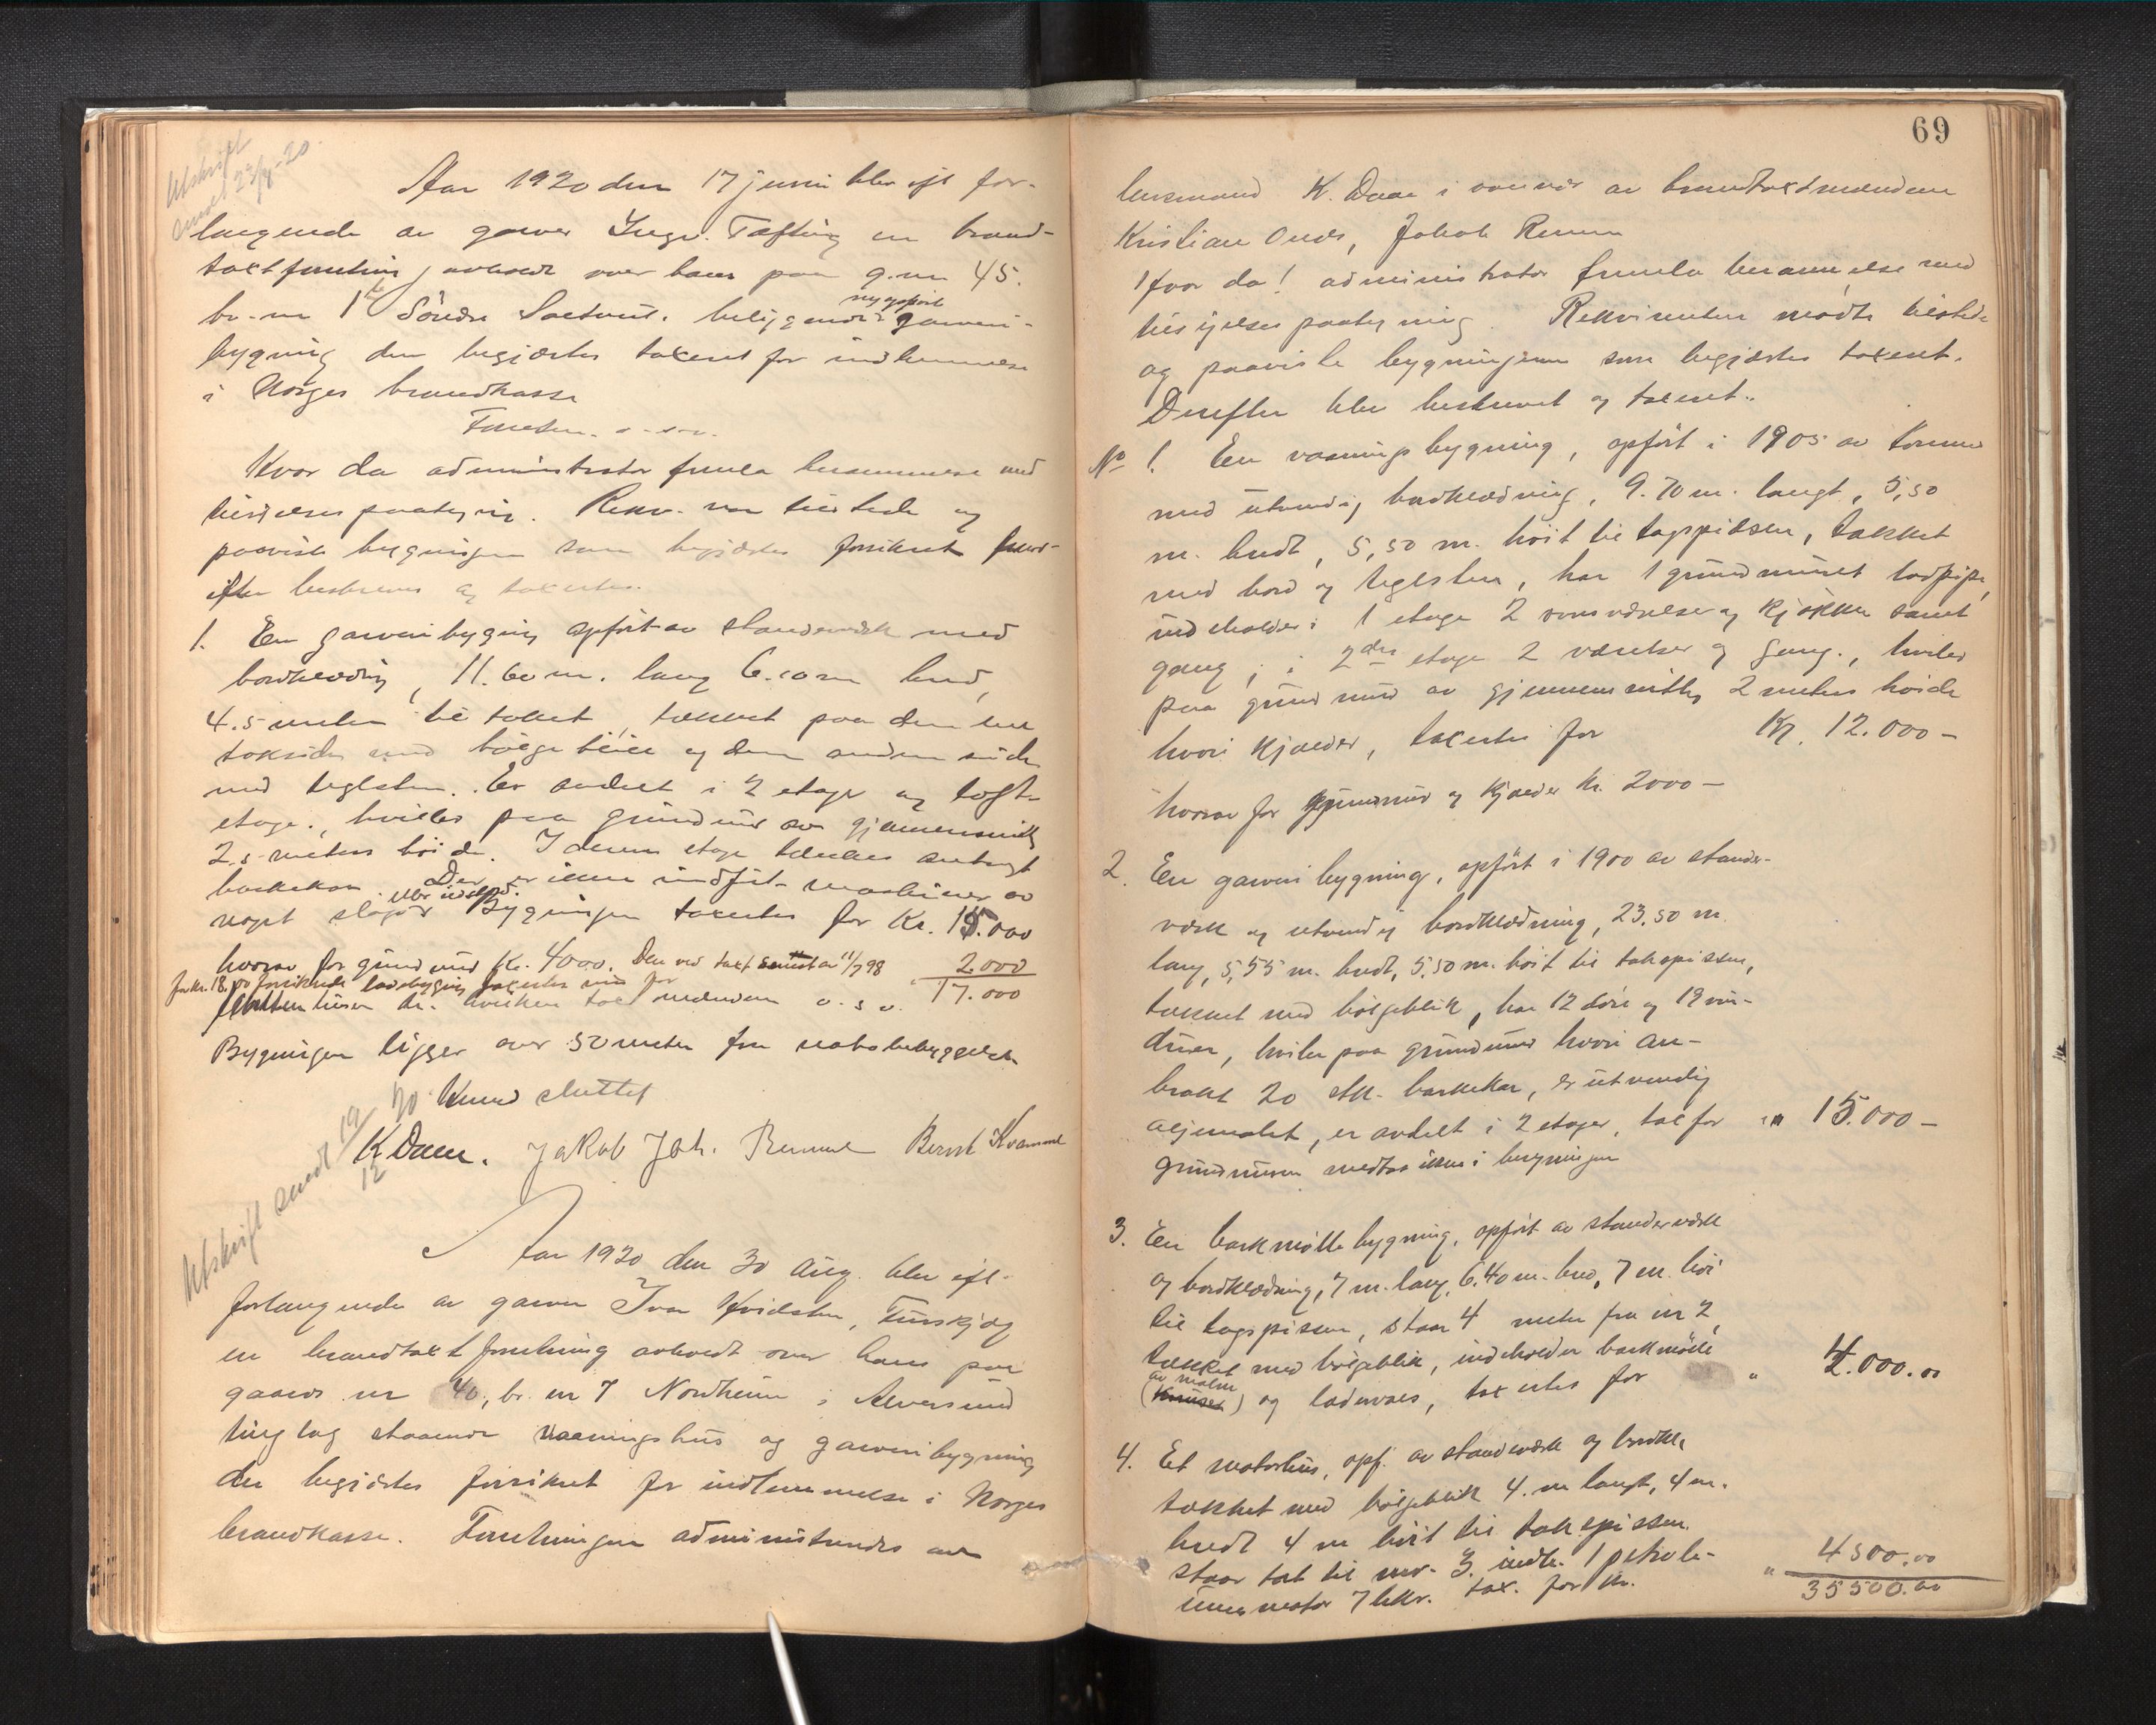 Utskrift
sendt 23/7-20.
Aar 1920 den 17 juni blev eft. for-
langende av garver Ingv. Tæfting en brand-
taxtforretning avholdt over hans paa g.nr. 45.
br.-nr 1 Söndre beliggende nyopfört garveri-
bygning den begjærtes taxeret for indlemmelse
i Norges brandkasse
Forretn. o-s-v.
Hvor da administrator fremla berammelse med
tilsigelses paategning. Rekv. var tilstede og
paaviste bygningen som begjærtes forsikret hvor-
efter beskreves og taxertes.
1. En garveribygning opfört av standerverk med
bordklædning, 11.60 m. lang 6.10 m bred,
4.5 meter til taket, tækket paa den ene
takside med bölgeblikk og den anden side
med teglsten. Er avdelt i 2 etager og loft-
etage., hviler paa grundmur av gjennemsnitlig
2.5 meters höide. I denne etage
barkekar. Der er ikke indfört maskiner av
noget slags eller ildsted. Bygningen taxertes for Kr. 15.000
hvorav for grundmur Kr. 4000. Den ved taxt av 11/7 98 2.000
for kr. 1800 forsikrede ladebygning taxertes for " 17.000
hvilken taxt mændene o. s v.
Bygningen ligger over 50 meter fra nabobebyggelse
Hermed sluttet
K Daae. Jakob Joh. Remme Bernt Kvamme
Utskrift sendt 19/12 20
Aar 1920 den 30 Aug. blev eft.
forlangende av garver Ivar Kvidsten,
en brandtaxtforretning avholdt over hans paa
gaards nr 40, br. nr 7 Nordheim i Alversund
tinglag staaende vaaningshus og garveribygning
der begjærtes forsikret for indlemmelse i Norges
brandkasse. Forretningen administreredes av
69
lensmand K. Daae i nærvær av brandtaxtmændene
Kristian Ones, Jakob Remme
Hvor da! administrator fremla berammelse med
tilsigelses paategning. Rekvirenten mødte tilstede
og paaviste bygningene som begjærtes taxeret.
Derefter blev beskrevet og taxeret..
No 1. En vaaningsbygning, opfört i 1905 av tömmer
med utvendig bordklædning, 9.70 m. langt, 5,50
m. bredt, 5,50 m. höit til tagspidsen, tækket
med bord og teglsten, har 1 grundmuret ladpipe,
indeholder i 1 etage 2 værelser og kjøkken samt
gang, i 2den etage 2 værelser og gang., hviler
paa grundmur av gjennemsnitlig 2 meters höide
hvori kjælder, taxertes for Kr. 12.000 –
hvorav for grundmur og kjælder kr. 2000 –
2. En garveribygning, opfört i 1900 av stander-
værk og utvendig bordklædning, 23.50 m.
lang, 5,55 m. bredt, 5.50 m. höit til takspissen,
tækket med bölgeblikk, har 12 döre og 19 vin-
duer, hviler paa grundmur hvori an-
bragt 20 stk. barkekar, er utvendig
oljemalet, er avdelt i 2 etager, tax for " 15.000 –
grundmuren medtas ikke i beregningen
3. En barkmöllebygning, opfört av standerværk
og bordklædning, 7 m. lang, 6.40 m. bred, 7 m. höi
til tagspissen, staar 4 meter fra nr 2,
tækket med bölgeblikk, indeholder barkmölle
(av malm) og ladervals, taxertes for " 4.000.00
4. Et motorhus, opf. av standerværk og bordkl.
tækket med bölgeblikk 4. m langt, 4 m.
bredt 4 m höit til takspissen.
staar tæt til nr. 3. indh. 1 petrole-
umsmotor 7 hkr. tax. for kr. " 4500.00
35500.00